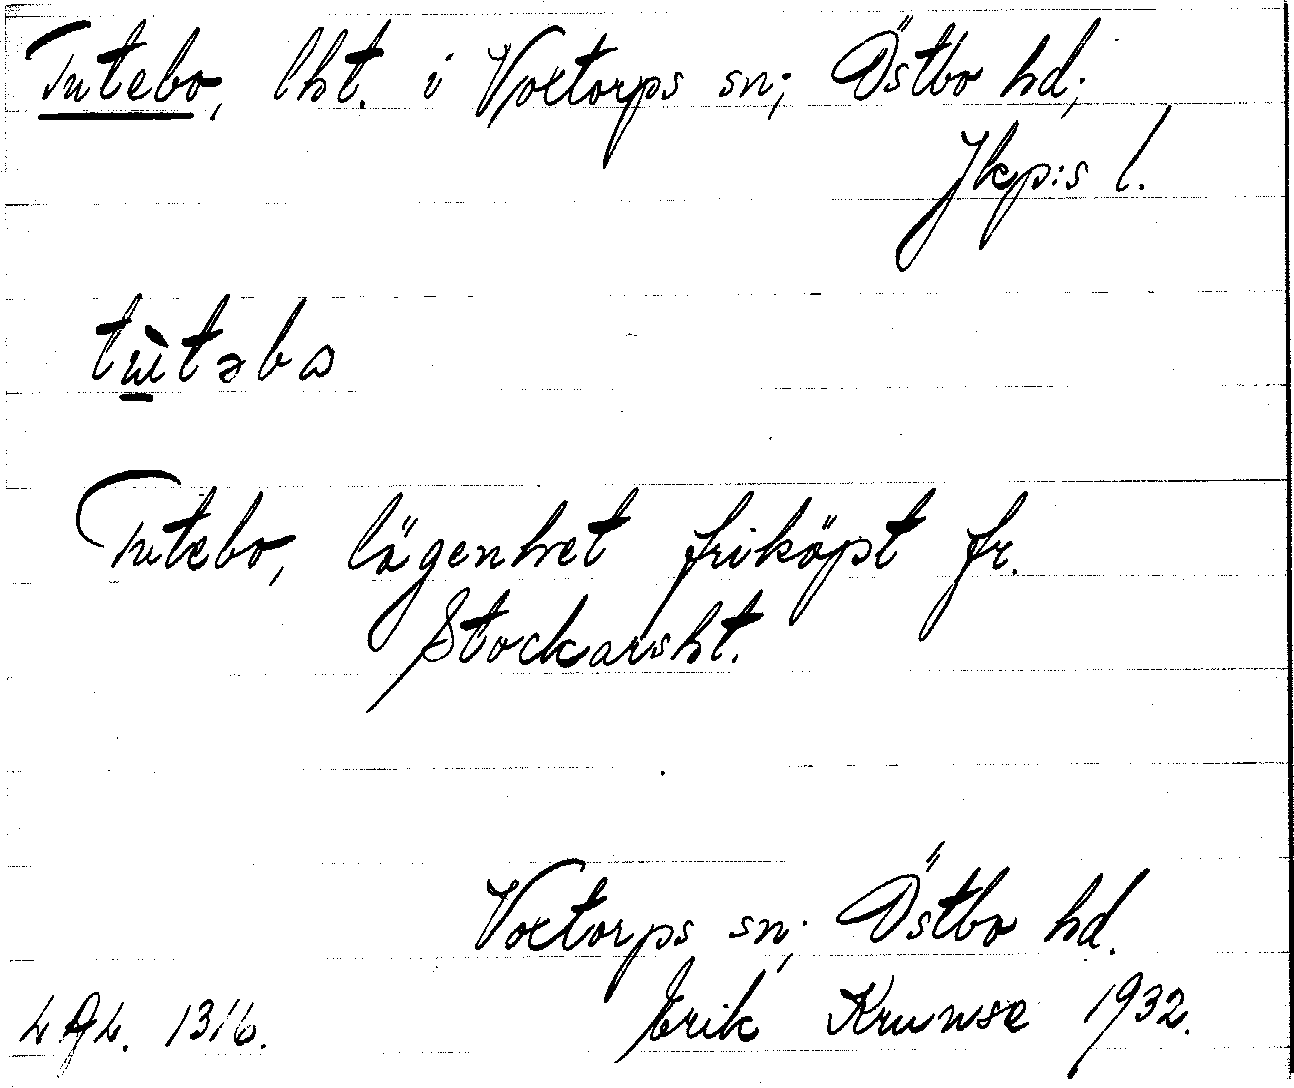 Tutebo, lht. i Voxtorps sn; Östbo hd;
Jkp:s l.
tùtəbo
Tutebo, lägenhet friköpt fr.
Stockarsht.
Voxtorps sn; Östbo hd.
Erik Krunse 1932.
L.A.L. 1316.